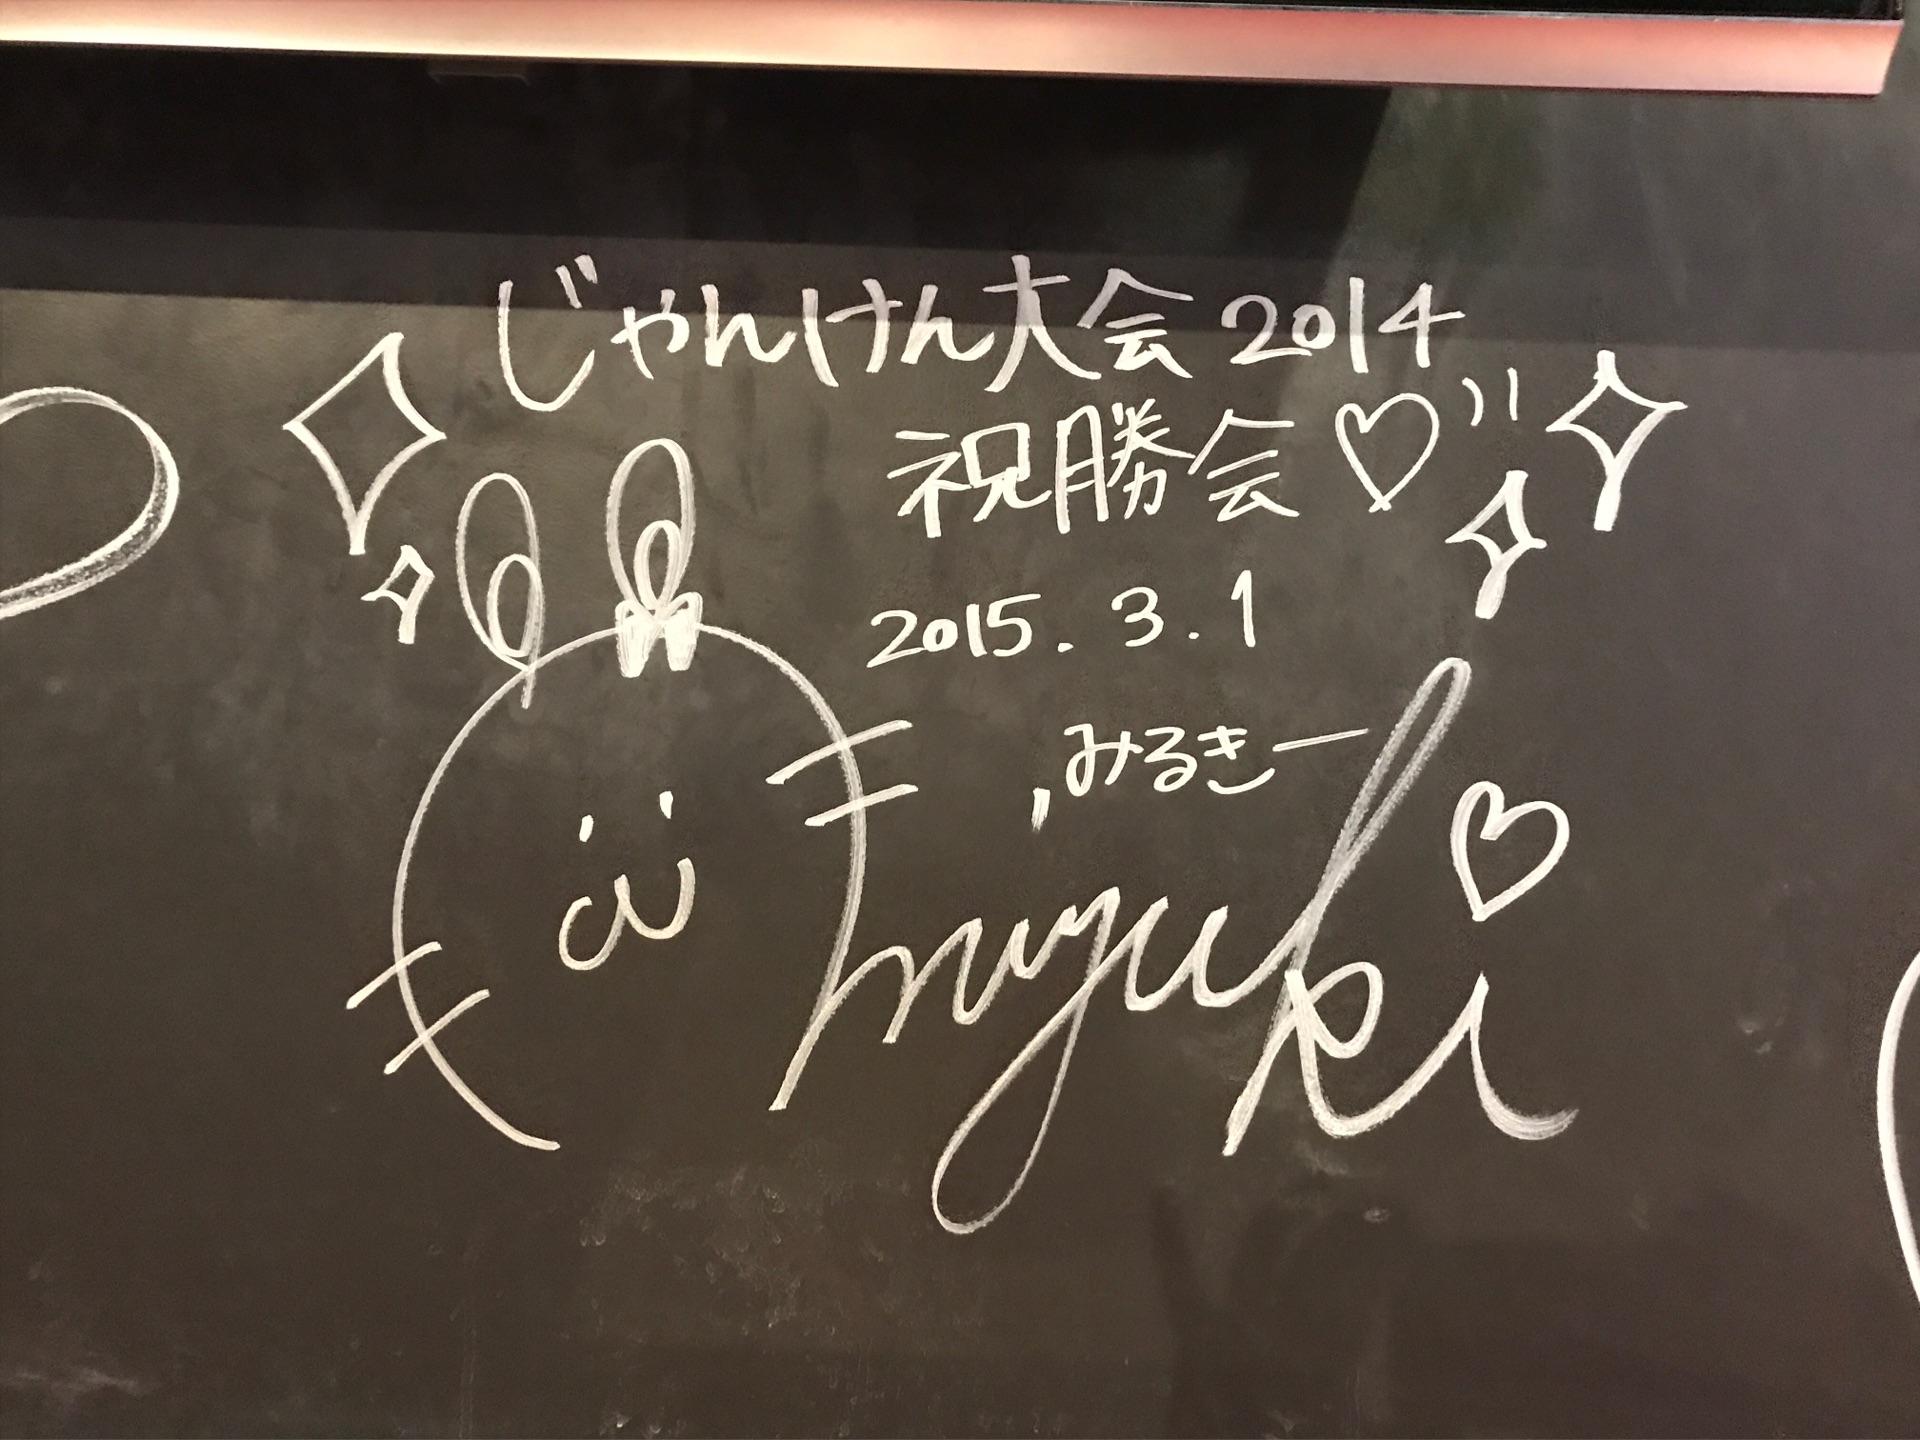 じゃんけん大会2014
祝勝会♡
2015.3.1
みるきー
miyuki♡